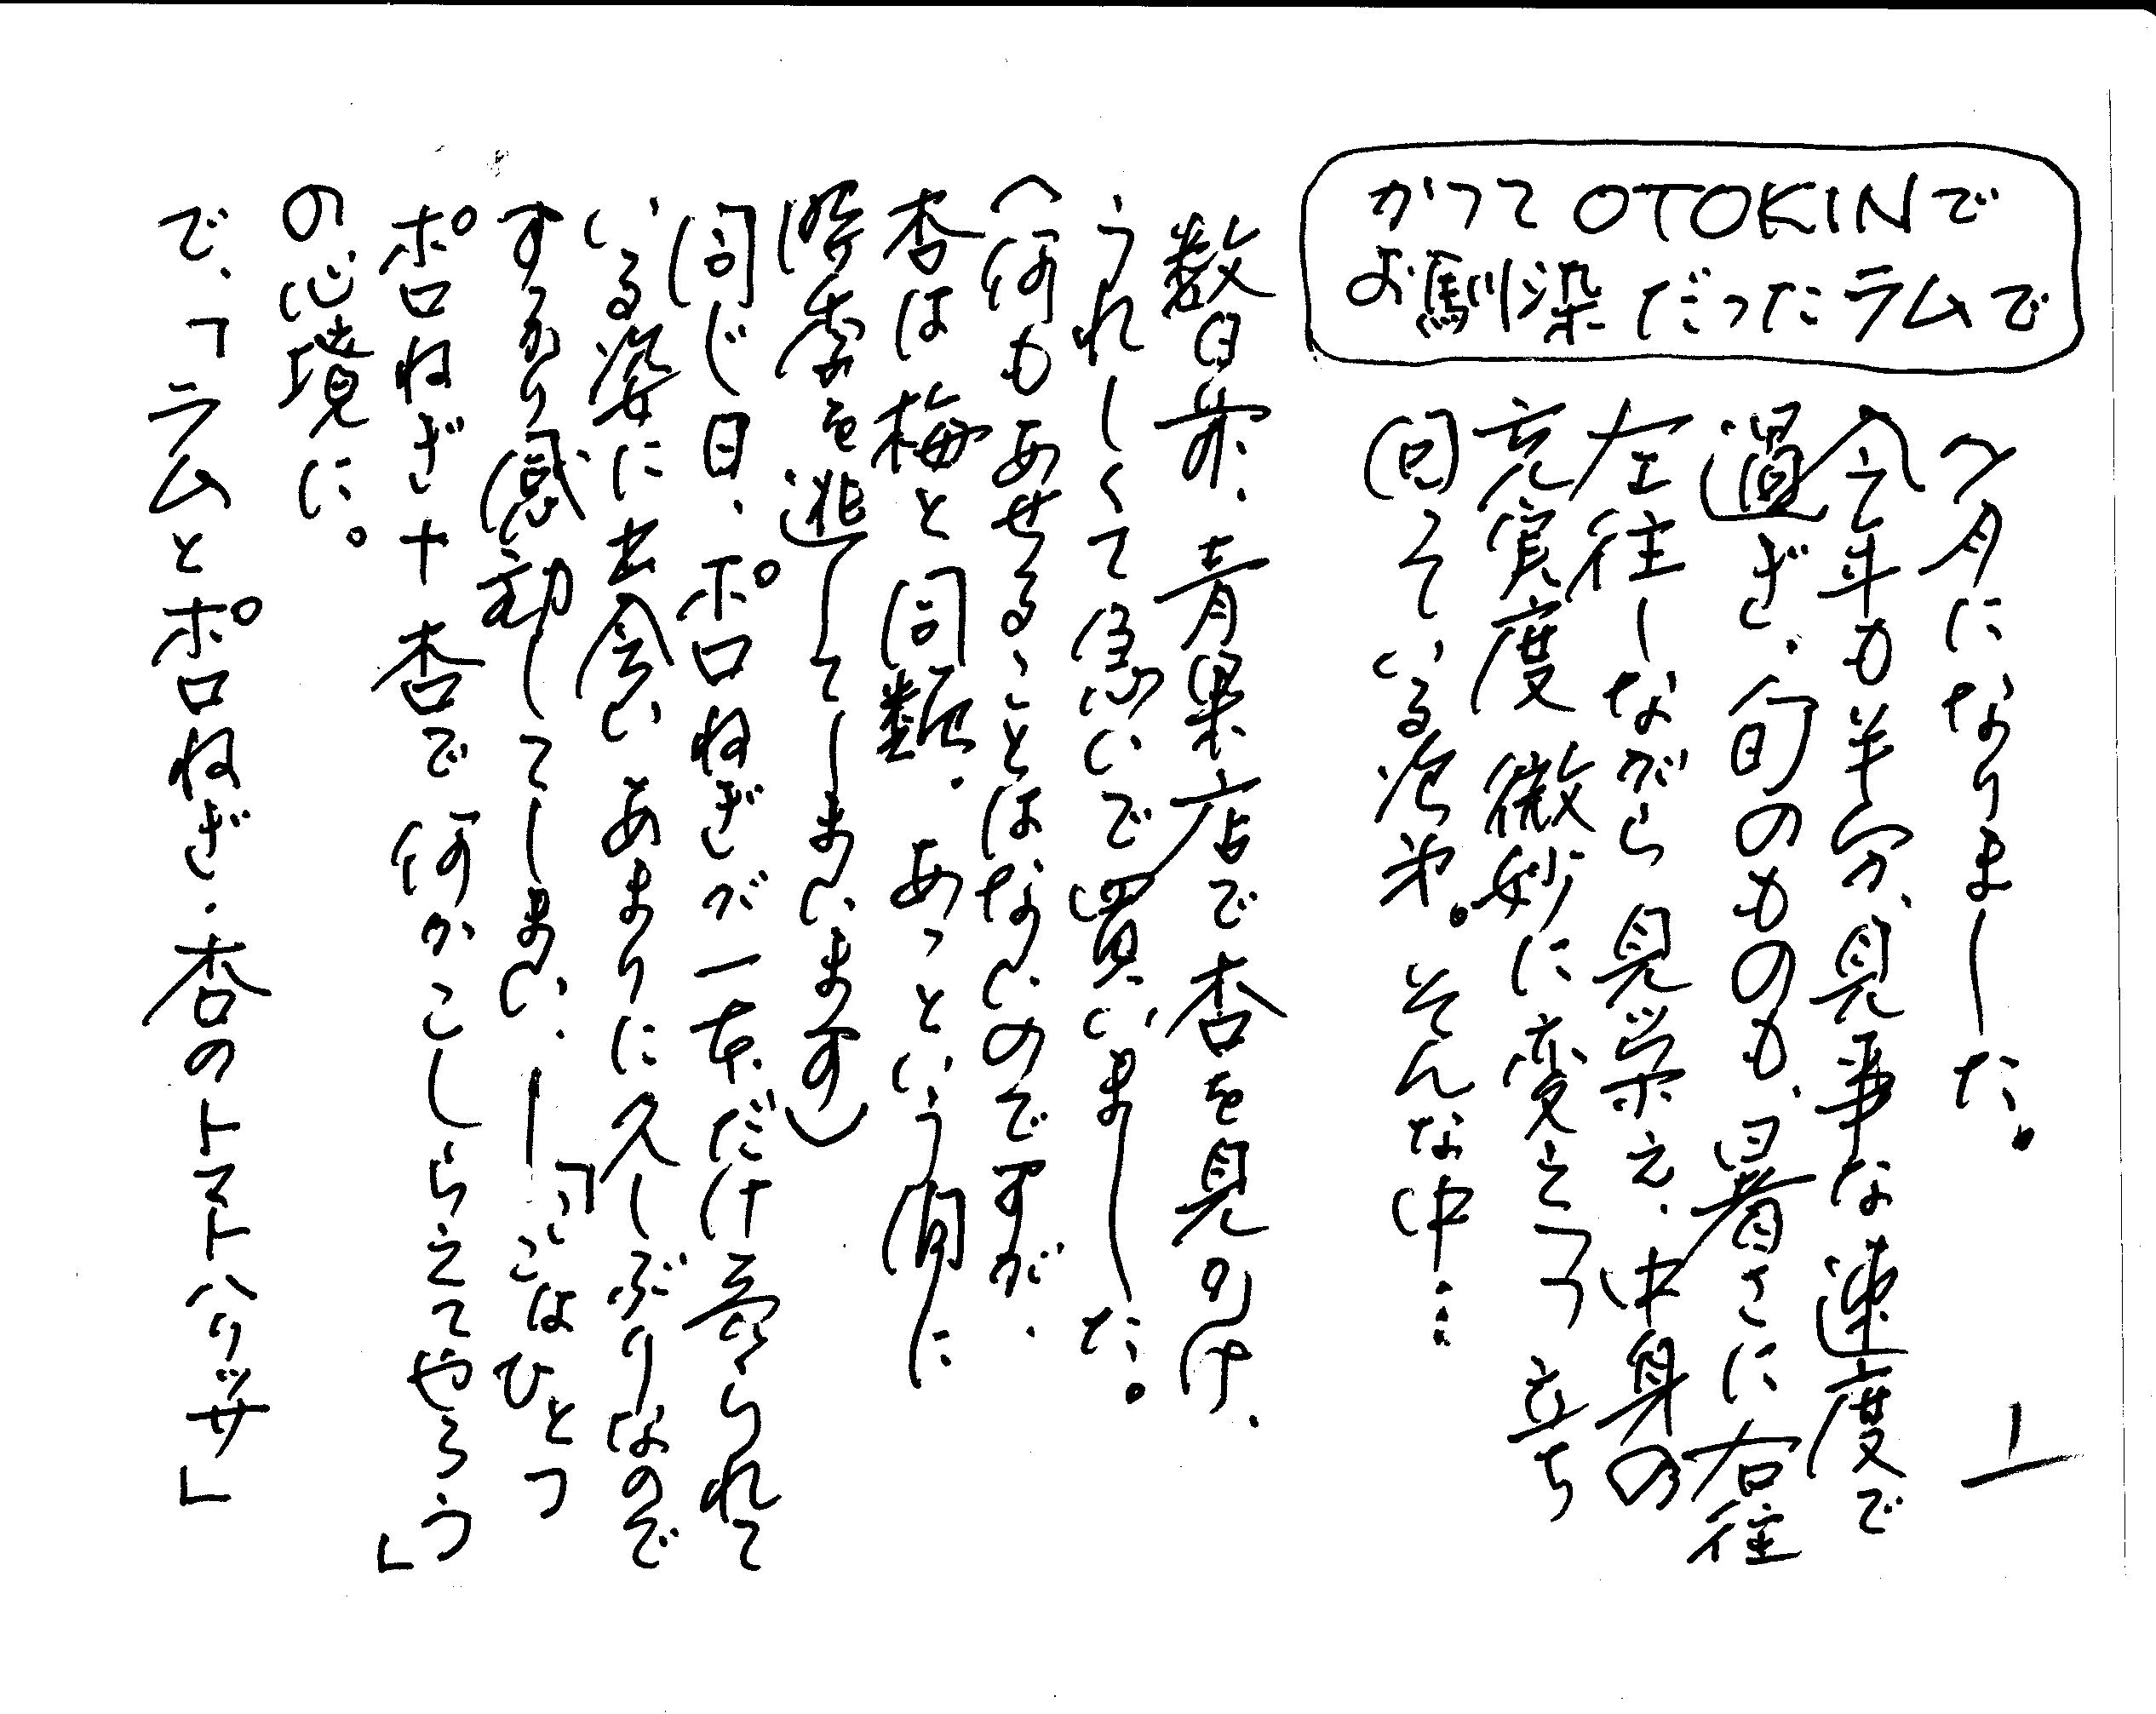 かつてOTOKINで
お馴染だったラムで
7月になりました。
今年も半分、見事な速度で
過ぎ、旬のものも、暑さに右往
左往しながら見栄え、中身の
充実度微妙に変えつつ立ち
回っている次第。そんな中…
1
数日前、青果店で杏を見つけ、
うれしくて急いで買いました。
(何もあせることはないのですが、
杏は梅と同類、あっという間に
時季を逃してしまいます)
同じ日、ポロねぎが一本だけ売られて
いる姿に出会い あまりに久しぶりなので
すっかり感動してしまい、―「ここはひとつ
ポロねぎ+杏で何かこしらえてやろう」
の心境に。
で、「ラムとポロねぎ・杏のトマトハリッサ」